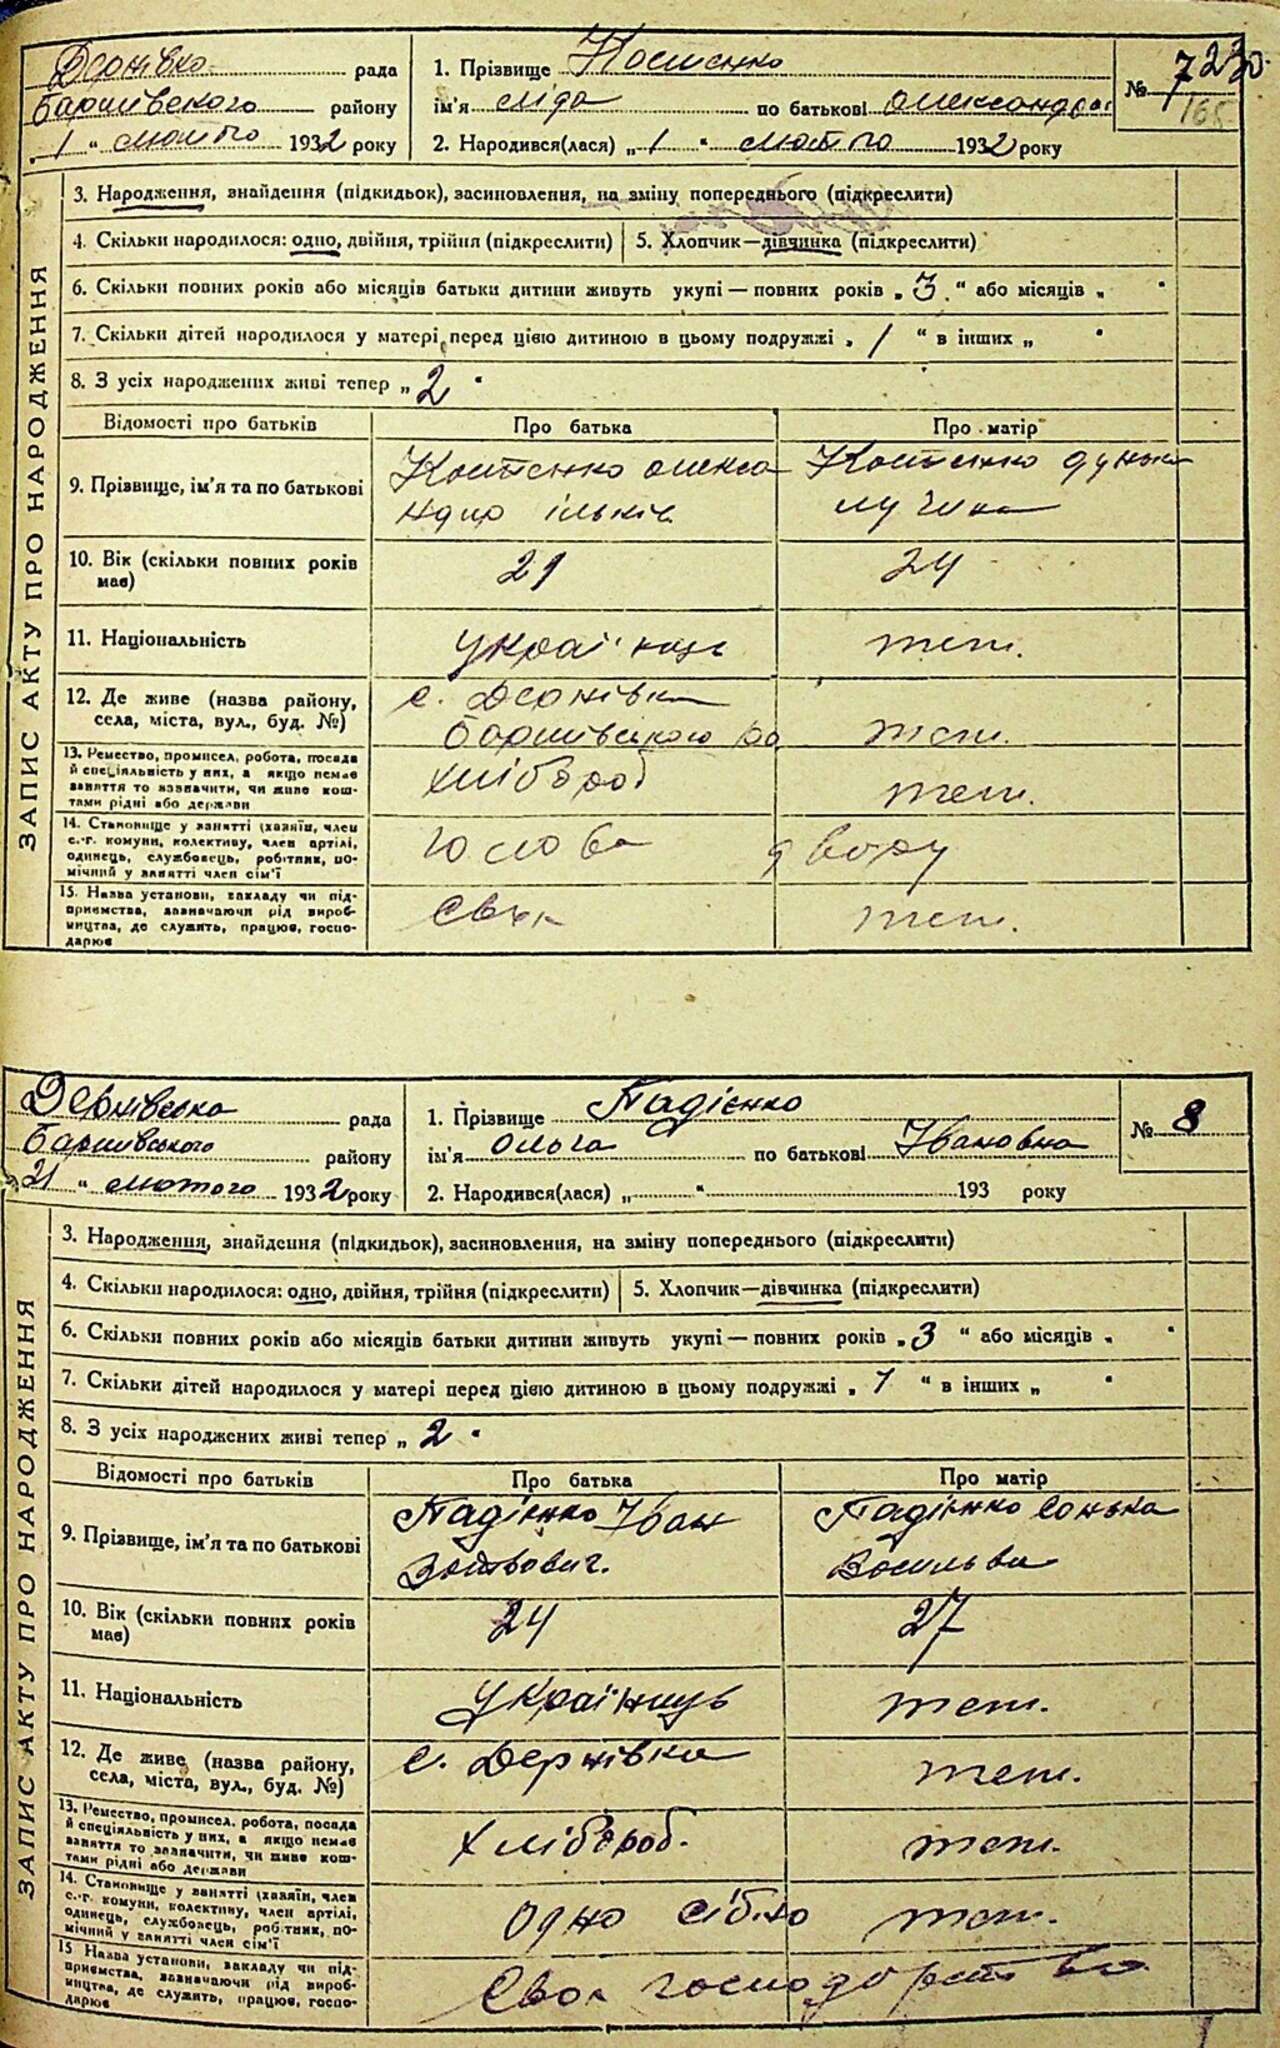 Дернівко рада
Баришівского району
„ 1 “ лютго 1932 року
1. Прізвище Костенко
ім'я ліда по батькові олександров
2. Народився(лася) „ 1 “ лютго 1932 року
№ 7
165
ЗАПИС АКТУ ПРО НАРОДЖЕННЯ
3. Народження, знайдення (підкидьок), засиновлення, на зміну попереднього (підкреслити)
4. Скільки народилося: одно, двійня, трійня (підкреслити) 5. Хлопчик—дівчинка (підкреслити)
6. Скільки повних років або місяців батьки дитини живуть укупі — повних років „ 3 “ або місяців „ “
7. Скільки дітей народилося у матері перед цією дитиною в цьому подружжі „ 1 “ в інших „ “
8. З усіх народжених живі тепер „ 2 “
Відомості про батьків Про батька Про матір
9. Прізвище, ім'я та по батькові Костенко олекса Костенко дунька
ндро ільків
10. Вік (скільки повних років має) 29 24
11. Національність українць теж.
12. Де живе (назва району, с. Дернівка
села, міста, вул., буд. №) Баришівського ра теж.
13. Ремество, промисел, робота, посада хлібороб теж.
й спеціяльність у них, а якщо немає
заняття то зазначити, чи живе кош-
тами рідні або держави
14. Становище у занятті (хазяїн, член голова двору
с.-г. комуни, колективу, член артілі,
одинець, службовець, робітник, по-
мічний у занятті член сім'ї
15. Назва установи, закладу чи під- теж.
приємства, зазначаючи рід вироб-
ництва, де служить, працює, госпо-
дарює
Дернівська рада
Баришівського району
21 “ лютого 1932 року
1. Прізвище Падієнко
ім'я Ольга по батькові Івановна
2. Народився(лася) „ “ 193 року
№ 8
ЗАПИС АКТУ ПРО НАРОДЖЕННЯ
3. Народження, знайдення (підкидьок), засиновлення, на зміну попереднього (підкреслити)
4. Скільки народилося: одно, двійня, трійня (підкреслити) 5. Хлопчик—дівчинка (підкреслити)
6. Скільки повних років або місяців батьки дитини живуть укупі — повних років „ 3 “ або місяців „ “
7. Скільки дітей народилося у матері перед цією дитиною в цьому подружжі „ 1 “ в інших „ “
8. З усіх народжених живі тепер „ 2 “
Відомості про батьків Про батька Про матір
9. Прізвище, ім'я та по батькові Падієнко Іван Падієнко Сонька
Васильвна
10. Вік (скільки повних років має) 24 27
11. Національність Українець теж.
12. Де живе (назва району, с. Дернівка теж.
села, міста, вул., буд. №)
13. Ремество, промисел, робота, посада хлібороб. теж.
й спеціяльність у них, а якщо немає
заняття то зазначити, чи живе кош-
тами рідні або держави
14. Становище у занятті (хазяїн, член одно сібно теж.
с.-г. комуни, колективу, член артілі,
одинець, службовець, робітник, по-
мічний у занятті член сім'ї
15 Назва установи, закладу чи під- Своє господарство
приємства, зазначаючи рід вироб-
ництва, де служить, працює, госпо-
дарює